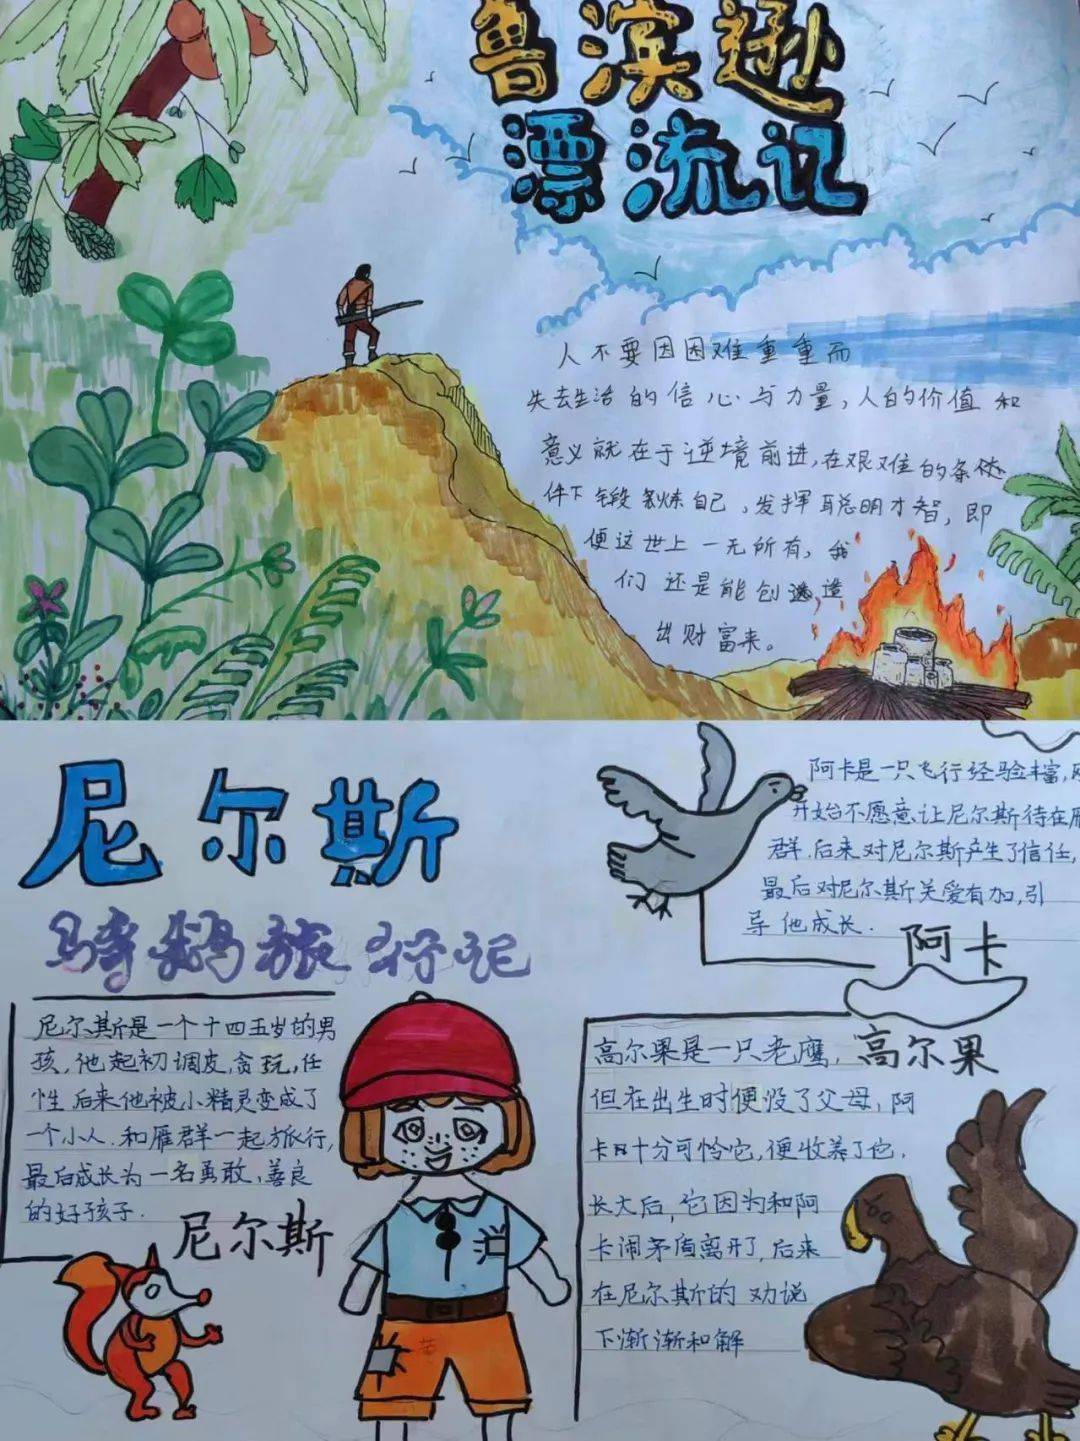 鲁滨逊
漂流记
人不要因困难重重而
失去生活的信心与力量,人的价值和
意义就在于逆境前进,在艰难的条
件下锻炼自己,发挥聪明才智,即
便这世上一无所有,我
们还是能创造
出财富来。
尼尔斯
骑鹅旅行记
阿卡是一只飞行经验丰富,
开始不愿意让尼尔斯待在雁
群.后来对尼尔斯产生了信任,
最后对尼尔斯关爱有加,引
导他成长.
阿卡
尼尔斯是一个十四五岁的男
孩,他起初调皮,贪玩,任
性.后来他被小精灵变成了
一个小人.和雁群一起旅行,
最后成长为一名勇敢,善良
的好孩子.
尼尔斯
高尔果
高尔果是一只老鹰,
但在出生时便没了父母,阿
卡十分可怜它,便收养了他.
长大后,它因为和阿
卡闹矛盾离开了,后来
在尼尔斯的劝说
下渐渐和解